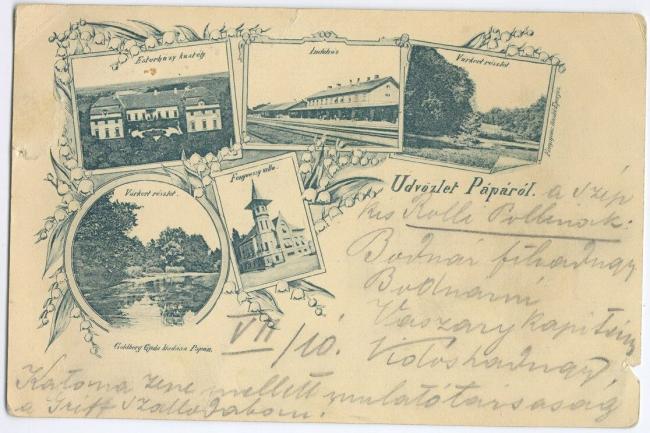 Esterházy kastély
Indóház
Várkert részlet
Várkert részlet.
Fenyvessy villa.
Üdvözlet Pápáról.
a szép
kis Rolli Pollinak:
Bodnár főhadnagy
Bodnárné
Vaszary kapitány
Vidos hadnagy
VII/10.
Goldberg Gyula kiadása Pápán.
Katona zene mellett mulató társaság
a Griff Szállodában.